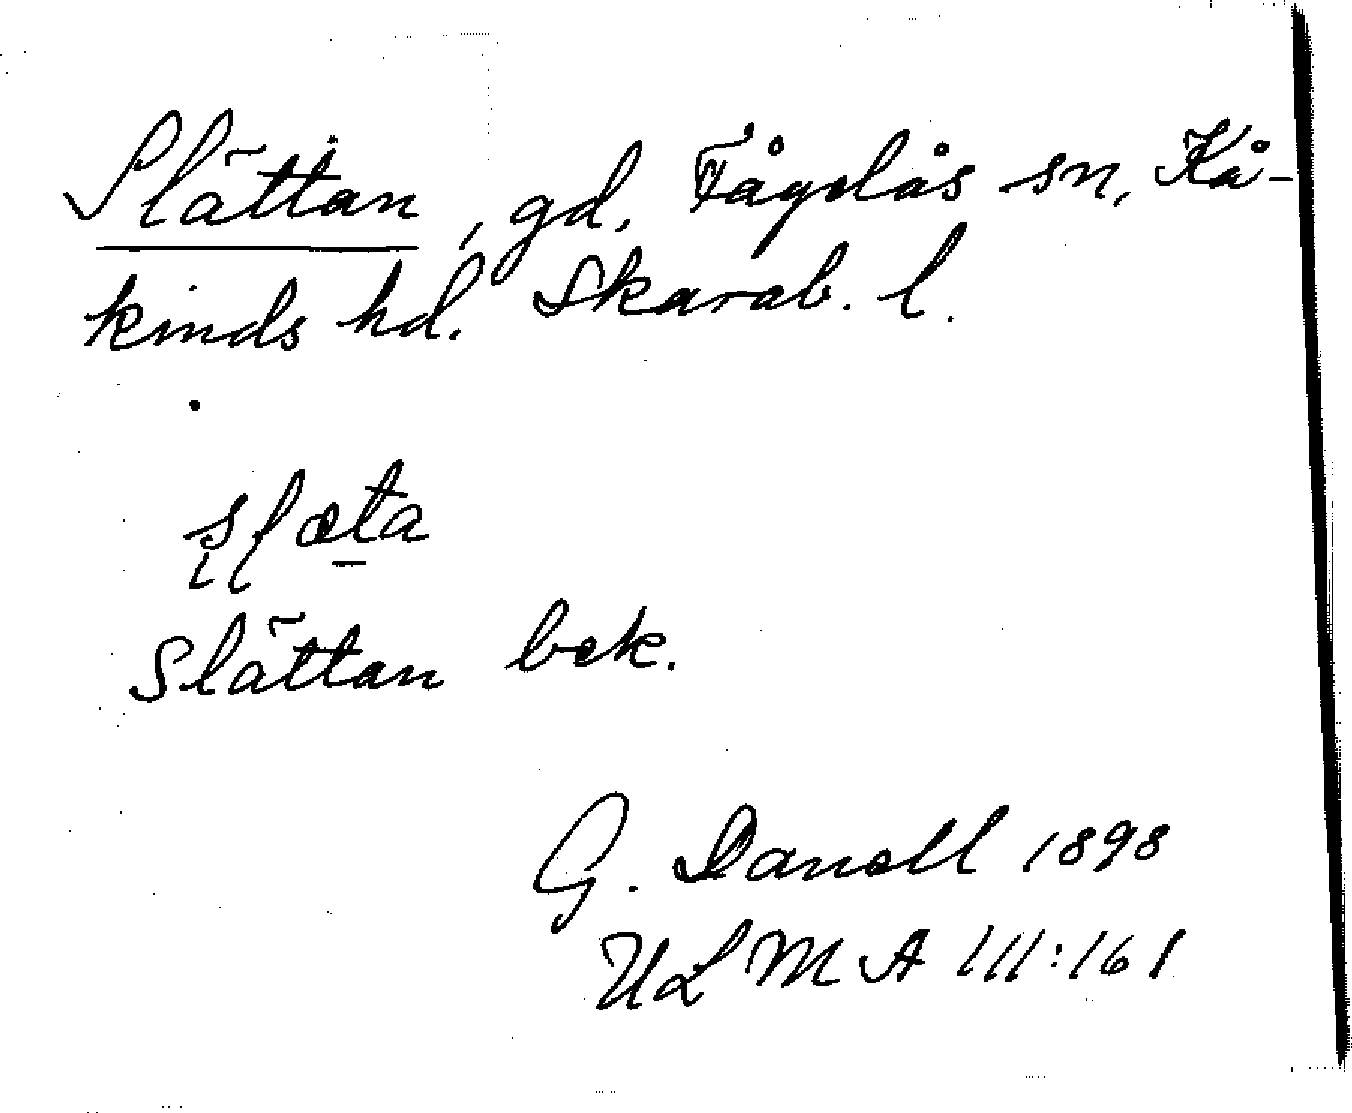 Slättan, gd, Fågelås sn, Kå-
kinds hd. Skarab. l.
slæta
Slättan bek.
G. Danell 1898
ULMA 111:161